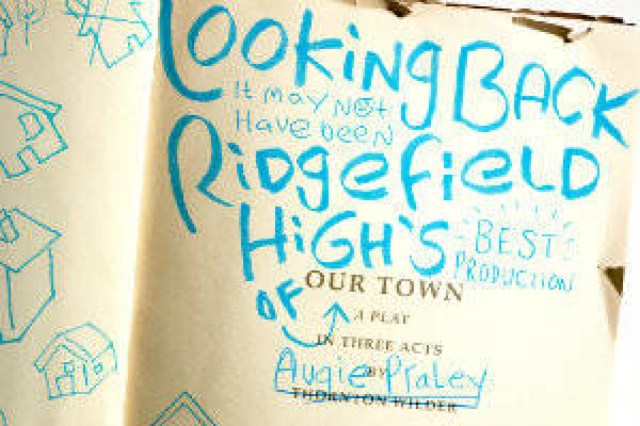 LOOKiNG BACK
It may Not
Have been
RiDGefieLD
HiGH'S
BEST
PRODUCTION
OF
OUR TOWN
A PLAY
IN THREE ACTS
BY
Augie Praley
THORNTON WILDER